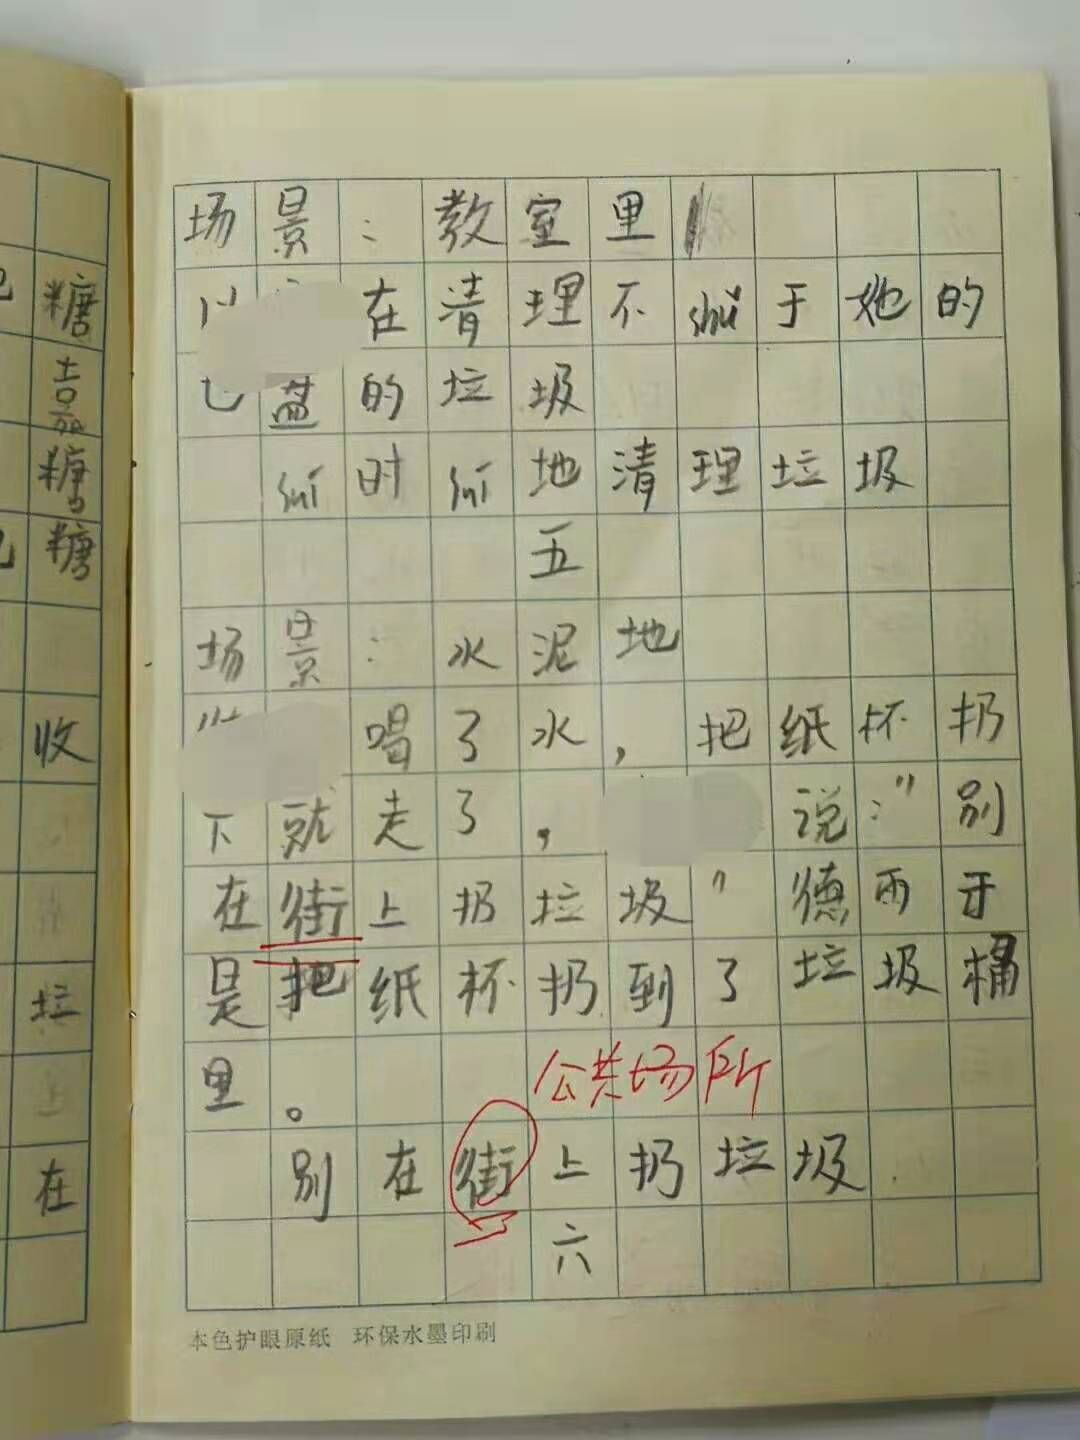 糖
嘉
糖
糖
收
垃
在
场景：教室里
在清理不shǔ于她的
地盘的垃圾
suí时suí地清理垃圾
五
场景：水泥地
喝了水，把纸杯扔
下就走了，说："别
在街上扔垃圾"德雨于
是把纸杯扔到了垃圾桶
里。
公共场所
别在街上扔垃圾
六
本色护眼原纸 环保水墨印刷